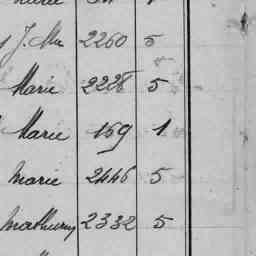 J. M. 2260 5
Marie 2228 5
Marie 169 1
Marie 2446 5
Mathurin 2332 5